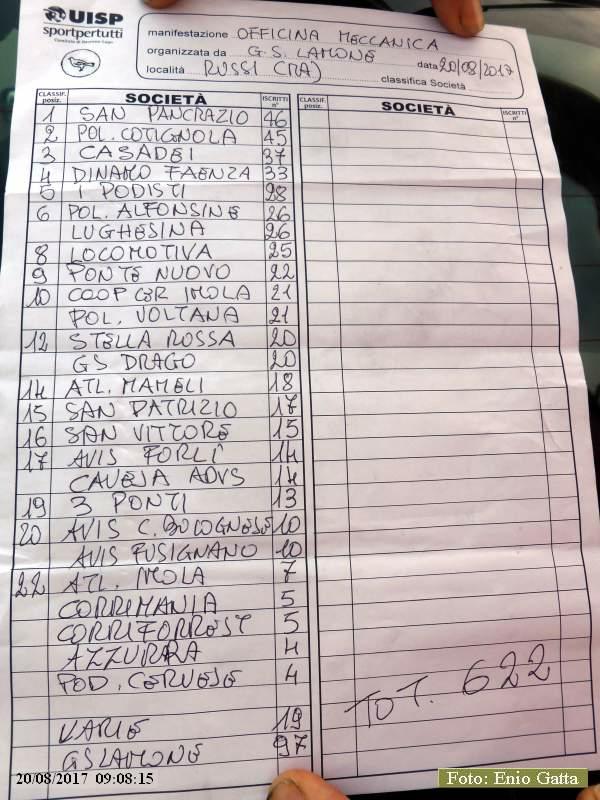 UISP
sportpertutti
manifestazione OFFICINA MECCANICA
organizzata da G.S. LAMONE data 20/08/2017
località RUSSI (RA) classifica Società
CLASSIF. posiz. SOCIETÀ ISCRITTI n° CLASSIF. posiz. SOCIETÀ ISCRITTI n°
1 SAN PANCRAZIO 46
2 POL. COTIGNOLA 45
3 CASADEI 37
4 DINAMO FAENZA 33
5 I PODISTI 28
6 POL. ALFONSINE 26
LUGHESINA 26
8 LOCOMOTIVA 25
9 PONTE NUOVO 22
10 COOP CER IMOLA 21
POL. VOLTANA 21
12 STELLA ROSSA 20
GS DRAGO 20
14 ATL. MAMELI 18
15 SAN PATRIZIO 17
16 SAN VITTORE 15
17 AVIS FORLÌ 14
CAVEJA ADVS 14
19 3 PONTI 13
20 AVIS C. BOLOGNESE 10
AVIS FUSIGNANO 10
22 ATL. IMOLA 7
CORRIMANIA 5
CORRIFORREST 5
AZZURRA 4
POD. CERVESE 4
TOT. 622
VARIE 19
GS LAMONE 97
20/08/2017 09:08:15
Foto: Enio Gatta